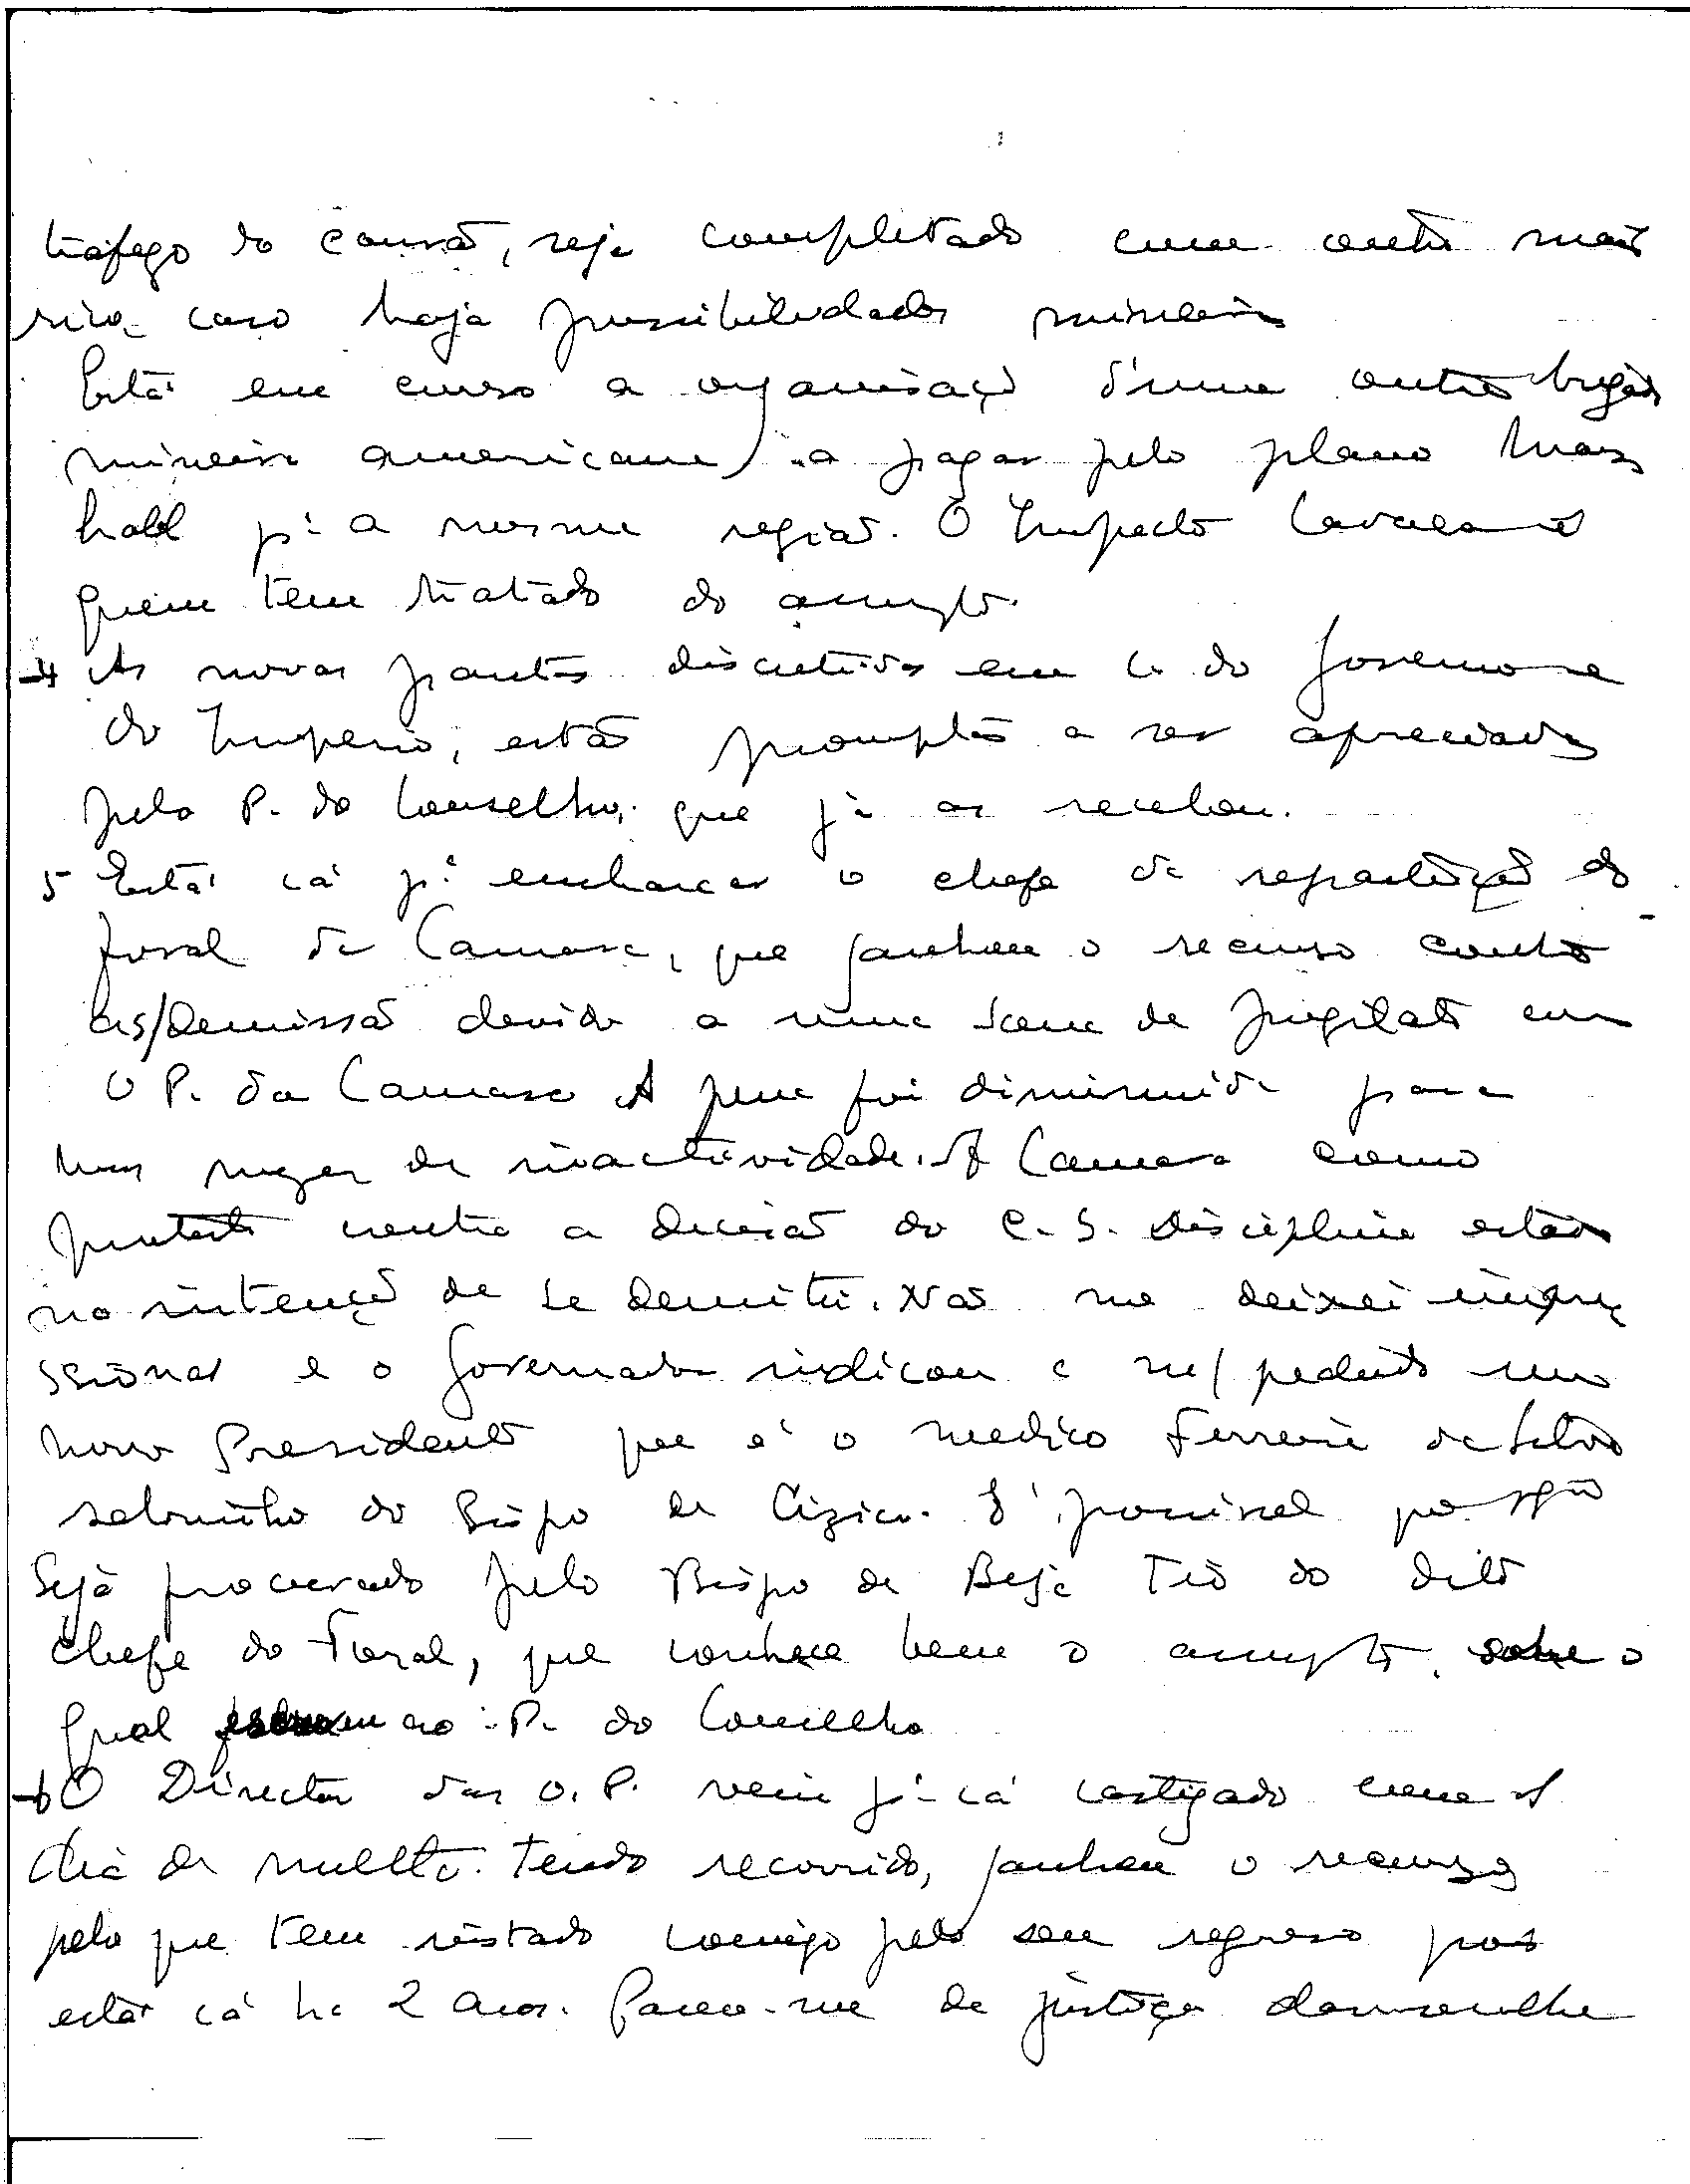 trafego do carvão, seja completado com outro mais
rico, caso haja possibilidades mineiras
Está em curso a organisaçã d'uma outra brigada
mineira americana, a pagar pelo plano Mars
hall pª a mesma região. O Inspecto Cavaca é
quem tem tratado do assumpto.
-4 As novas pautas discutidas em C. do Governo e
do Imperio, estão promptas a ser apreciadas
pelo P. do Conselho, que já as recebeu.
5 Está cá pª embarcar o chefe da repartição do
foral da Camara, que ganhou o recurso contra
a s/demissão devido a uma scena de pugilato com
o P. da Camara A pena foi diminuida para
uns mezes de inactividade. A Camara como
protesto contra a decisão do C. S. Disciplina estava
na intençã de se demitir. Não me deixei impre
ssionar e o Governador indicou a m/ pedido um
novo Presidente que é o medico Ferreira da Silva
sobrinho do Bispo de Cizico. É possivel que
seja procurado pelo Bispo de Beja Tio do dito
chefe do Foral, que conhece bem o assumpto, sobre o
qual ao P. do Conselho
-6 O Director das O. P. veiu pª cá castigado com 1
dia de multa. Tendo recorrido, ganhou o recurso
pelo que tem instado comigo pelo seu regresso pois
está cá ha 2 anos. Parece-me de justiça